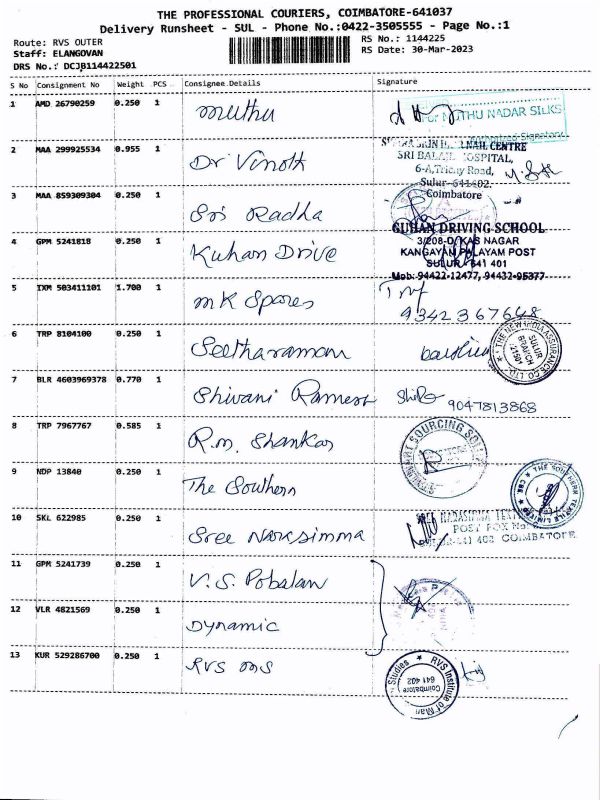 THE PROFESSIONAL COURIERS, COIMBATORE-641037
Delivery Runsheet - SUL - Phone No.:0422-3505555 - Page No.:1
Route: RVS OUTER
Staff: ELANGOVAN
DRS No.: DCJB114422501
RS No.: 1144225
RS Date: 30-Mar-2023
S No Consignment No Weight PCS Consignee Details Signature
1 AMD 26790259 0.250 1 Muthu
For MUTHU NADAR SILKS
Authorized Signatory
2 MAA 299925534 0.955 1 Dr Vinoth
CENTRE
SRI BALAJI HOSPITAL,
6-A, Trichy Road,
Sulur-641402.
Coimbatore
3 MAA 859309304 0.250 1 Sri Radha
4 GPM 5241818 0.250 1 Kuhan Drive
GUHAN DRIVING SCHOOL
3/208-D, KAS NAGAR
KANGAYAMPALAYAM POST
SULUR - 641 401
Mob: 94422-12477, 94432-95377
5 IXM 503411101 1.700 1 MK Spares
9342367648
6 TRP 8104100 0.250 1 Seetharaman
THE NEW INDIA ASSURANCE CO. LTD.
SULUR BRANCH
721501
7 BLR 4603969378 0.770 1 Shivani Ramesh
9047813868
8 TRP 7967767 0.585 1 R.M. Shankar
SOURCING
9 NDP 13840 0.250 1 The Southern
THE SOUTHERN TEXTILE LIMITED
CBE
10 SKL 622985 0.250 1 Sree Narasimma
SREE NARASIMMA TEXTILES
POST BOX No
641 402 COIMBATORE
11 GPM 5241739 0.250 1 V.S. Pobalan
12 VLR 4821569 0.250 1 Dynamic
13 KUR 529286700 0.250 1 RVS MS
RVS Institute of Mari
Studies
Coimbatore
641 402